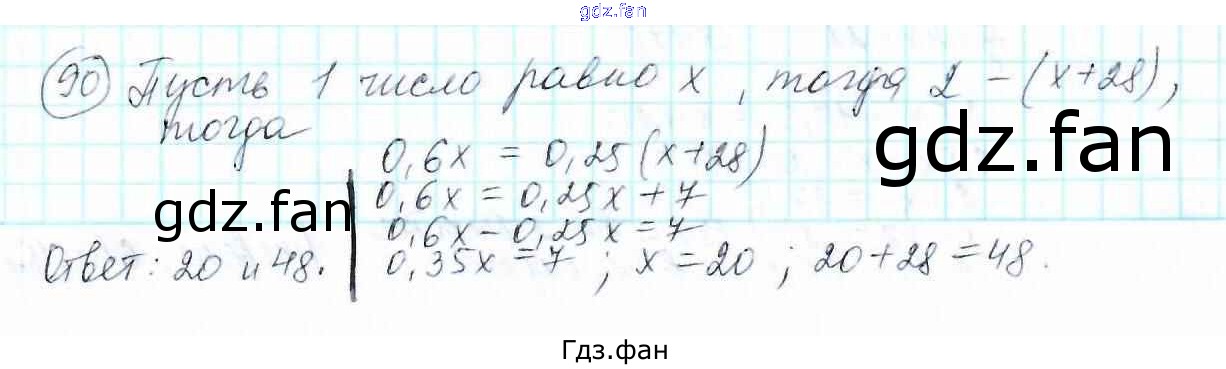 gdz.fan
90 Пусть 1 число равно x, тогда 2 - (x+28),
тогда
0,6x = 0,25(x+28)
gdz.fan
0,6x = 0,25x + 7
gdz.fan
0,6x - 0,25x = 7
Ответ: 20 и 48.
0,35x = 7 ; x = 20 ; 20+28=48.
Гдз.фан